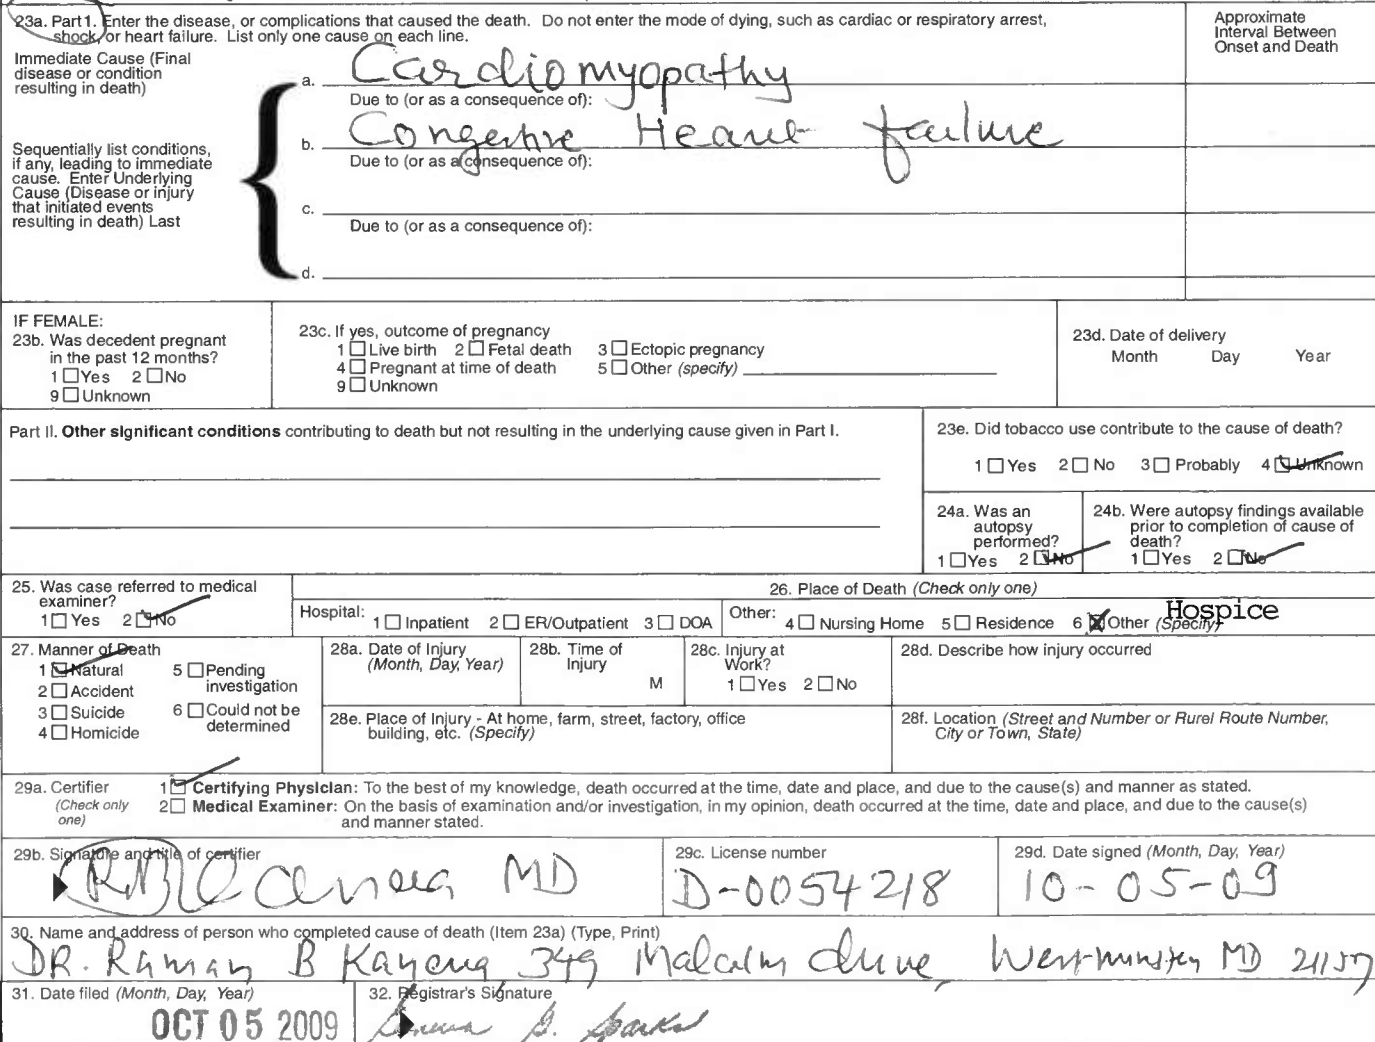 23a. Part1. Enter the disease, or complications that caused the death. Do not enter the mode of dying, such as cardiac or respiratory arrest,
shock, or heart failure. List only one cause on each line.
Approximate
Interval Between
Onset and Death
Immediate Cause (Final
disease or condition
resulting in death)
a. Cardiomyopathy
Due to (or as a consequence of):
Sequentially list conditions,
if any, leading to immediate
cause. Enter Underlying
Cause (Disease or injury
that initiated events
resulting in death) Last
b. Congestive Heart failure
Due to (or as a consequence of):
c.
Due to (or as a consequence of):
d.
IF FEMALE:
23b. Was decedent pregnant
in the past 12 months?
1 Yes 2 No
9 Unknown
23c. If yes, outcome of pregnancy
1 Live birth 2 Fetal death 3 Ectopic pregnancy
4 Pregnant at time of death 5 Other (specify)
9 Unknown
23d. Date of delivery
Month Day Year
Part II. Other significant conditions contributing to death but not resulting in the underlying cause given in Part I.
23e. Did tobacco use contribute to the cause of death?
1 Yes 2 No 3 Probably 4 Unknown
24a. Was an
autopsy
performed?
1 Yes 2 No
24b. Were autopsy findings available
prior to completion of cause of
death?
1 Yes 2 No
25. Was case referred to medical
examiner?
1 Yes 2 No
26. Place of Death (Check only one)
Hospital: 1 Inpatient 2 ER/Outpatient 3 DOA
Other: 4 Nursing Home 5 Residence 6 Other (Specify) Hospice
27. Manner of Death
1 Natural
2 Accident
3 Suicide
4 Homicide
5 Pending
investigation
6 Could not be
determined
28a. Date of Injury
(Month, Day, Year)
28b. Time of
Injury
M
28c. Injury at
Work?
1 Yes 2 No
28d. Describe how injury occurred
28e. Place of Injury - At home, farm, street, factory, office
building, etc. (Specify)
28f. Location (Street and Number or Rural Route Number,
City or Town, State)
29a. Certifier
(Check only
one)
1 Certifying Physician: To the best of my knowledge, death occurred at the time, date and place, and due to the cause(s) and manner as stated.
2 Medical Examiner: On the basis of examination and/or investigation, in my opinion, death occurred at the time, date and place, and due to the cause(s)
and manner stated.
29b. Signature and title of certifier
MD
29c. License number
D-0054218
29d. Date signed (Month, Day, Year)
10-05-09
30. Name and address of person who completed cause of death (Item 23a) (Type, Print)
DR. Raman B 349 Malcolm drive, Westminster MD 21157
31. Date filed (Month, Day, Year)
OCT 05 2009
32. Registrar's Signature